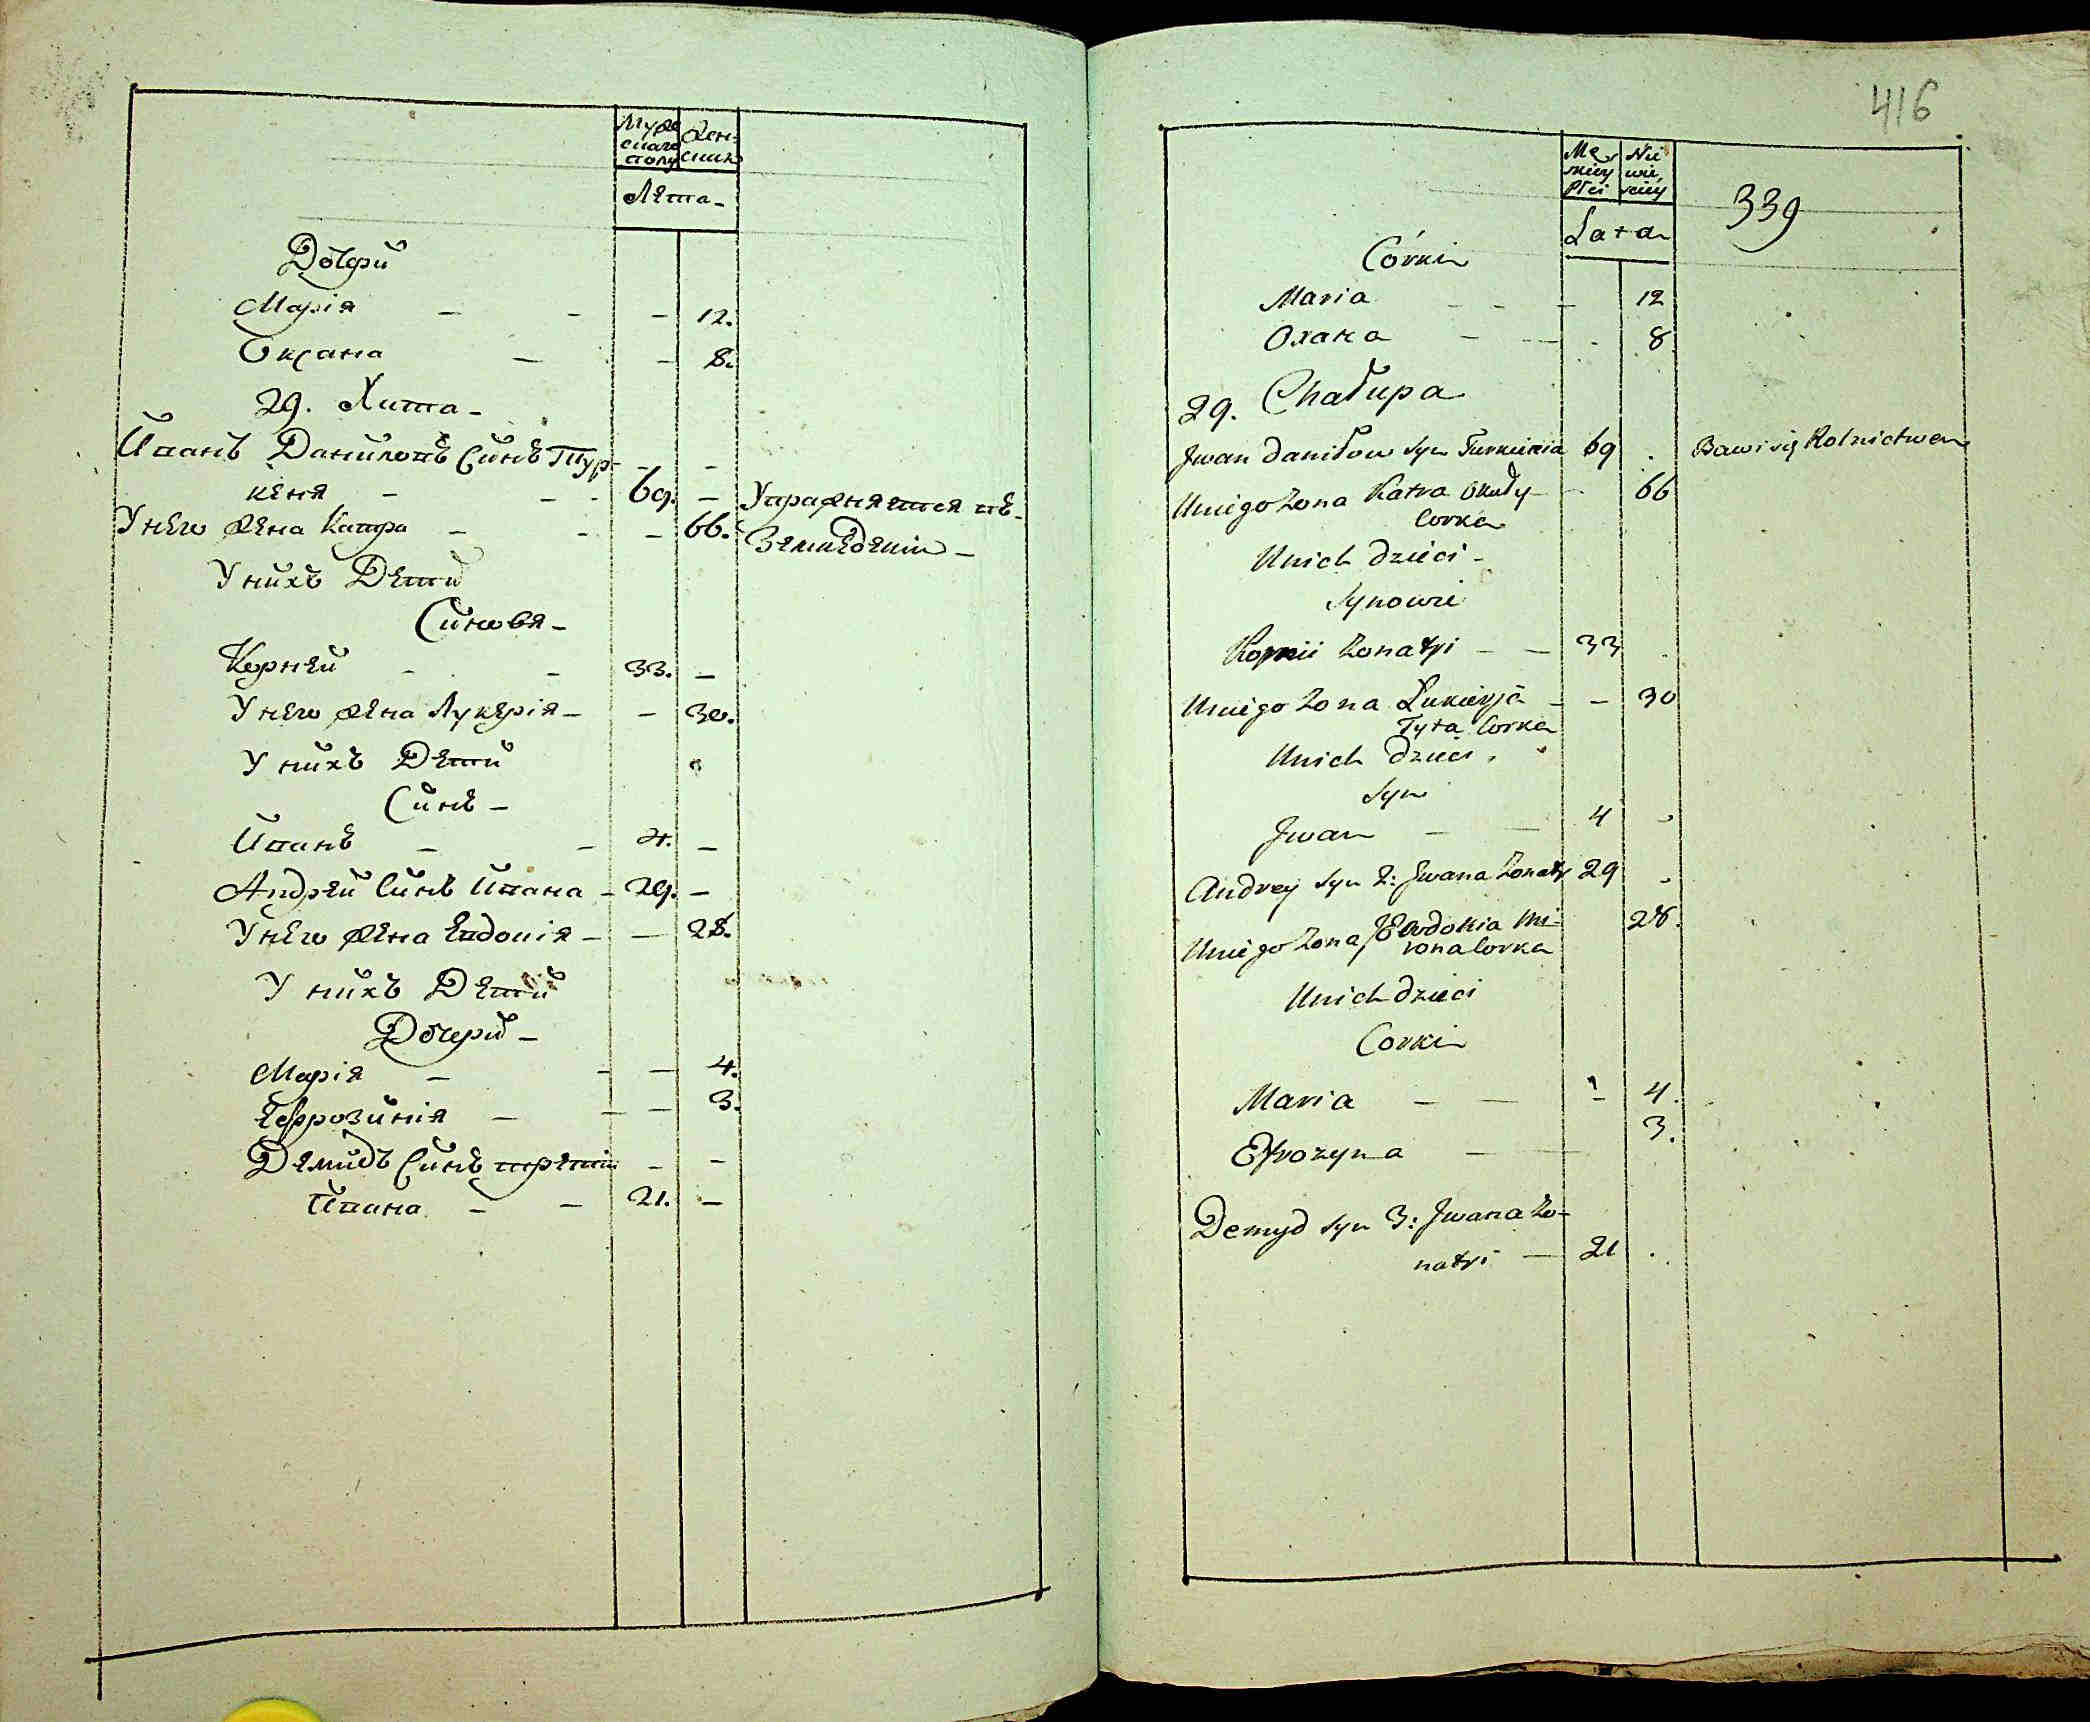 Муже
скаго
полу
Жен-
скаго
Лета-
Дочери
Марія - - - 12.
Оксана - - 8.
29. Хата-
Иванъ Даниловъ Синъ Тур-
кеня - - - 69. -
Упражняется въ
Земледелии -
У него жена Катра - - - 66.
У нихъ Дети
Синовя -
Корней - - 33. -
У него жена Лукерія - - 30.
У нихъ Дети
Синъ -
Иванъ - - 4. -
Андрей Синъ Ивана - 29. -
У него жена Евдокія - - 28.
У нихъ Дети
Дочери -
Марія - - - 4.
Ефрозинія - - - 3.
Демидъ Синъ третій - -
Ивана - - 21. -
416
Mę
skiey
Płci
Nie
wie
sciey
Lata
339
Córki
Maria - - - 12
Oxana - - - 8
29. Chałupa
Jwan Daniłow Syn Turkienia 69 .
Bawi się Rolnictwem
U niego Zona Katra - 66
Corka
U nich Dzieci -
Synowie
Kornii Zonaty - - 33
U niego Zona Łukierja - - 30
Tyta Corka
U nich Dzieci
Syn
Jwan - - 4
Andrey Syn 2: Jwana Zonaty 29
U niego Zona Ewdokia Mi- 28.
rona Corka
U nich Dzieci
Corki
Maria - - - 4.
Efrozyna - - 3.
Demyd Syn 3: Jwana Zo-
naty - 21 .